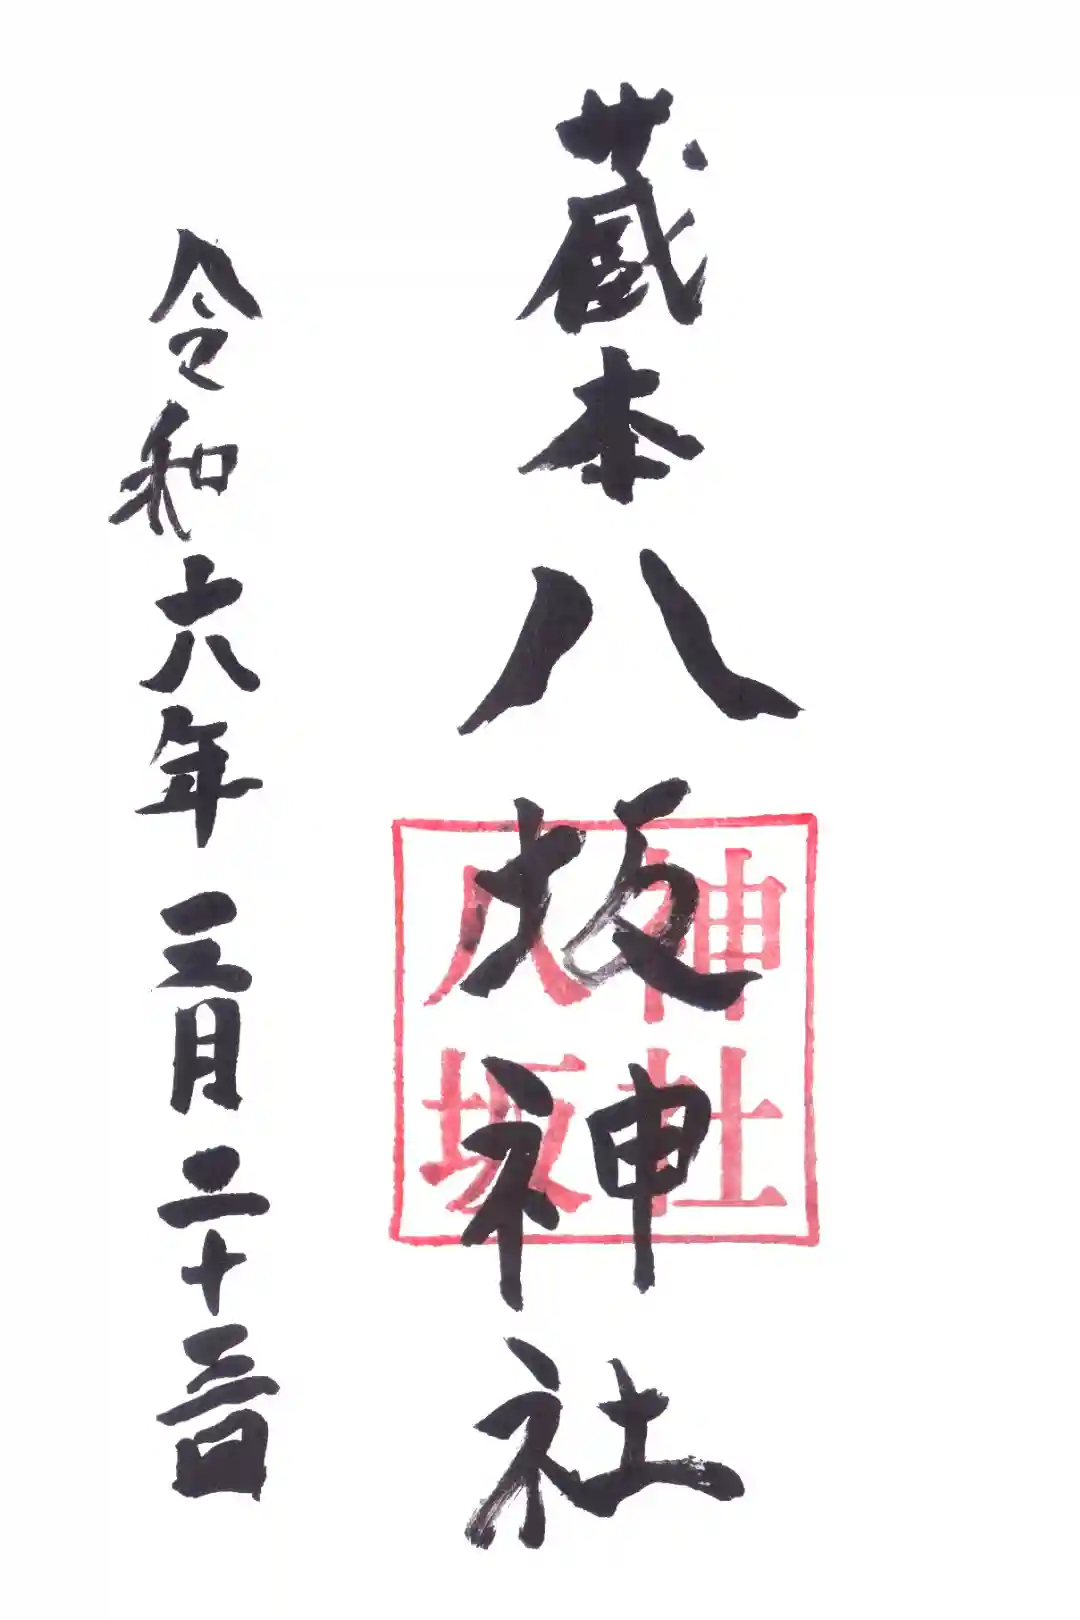 蔵本八坂神社
神社
八坂
令和六年三月二十三日